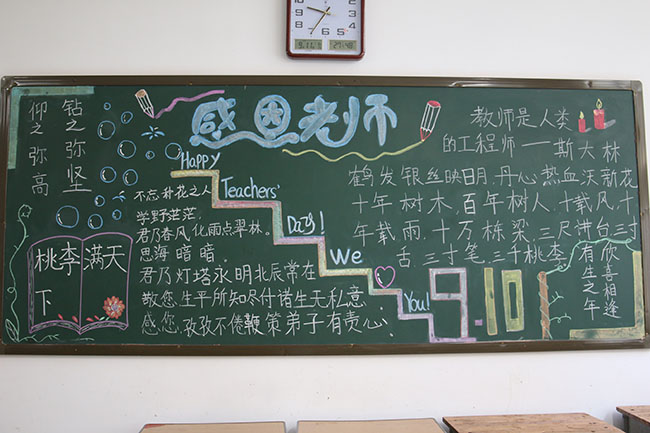 仰之弥高
钻之弥坚
感恩老师
Happy
Teachers'
Day!
We
You!
9.10
不忘种花之人
学野茫茫,
君乃春风化雨点翠林。
思海暗暗,
君乃灯塔永明北辰常在
敬您生平所知尽付诸生无私意
感您孜孜不倦鞭策弟子有责心
桃李满天
下
教师是人类
的工程师——斯大林
鹤发银丝映日月.丹心热血沃新花
十年树木百年树人十载风,十
年载雨,十万栋梁,三尺讲台三寸
舌,三寸笔,三千桃李
有生之年
欣喜相逢